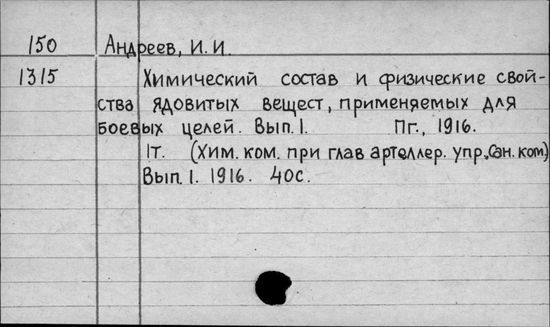 150 Андреев, И. И.
1315 Химический состав и физические свой-
ства ядовитых вещест, применяемых для
боевых целей. Вып. 1. Пг., 1916.
1т. (Хим. ком. при глав артеллер. упр. Сан. ком)
Вып. 1. 1916. 40с.